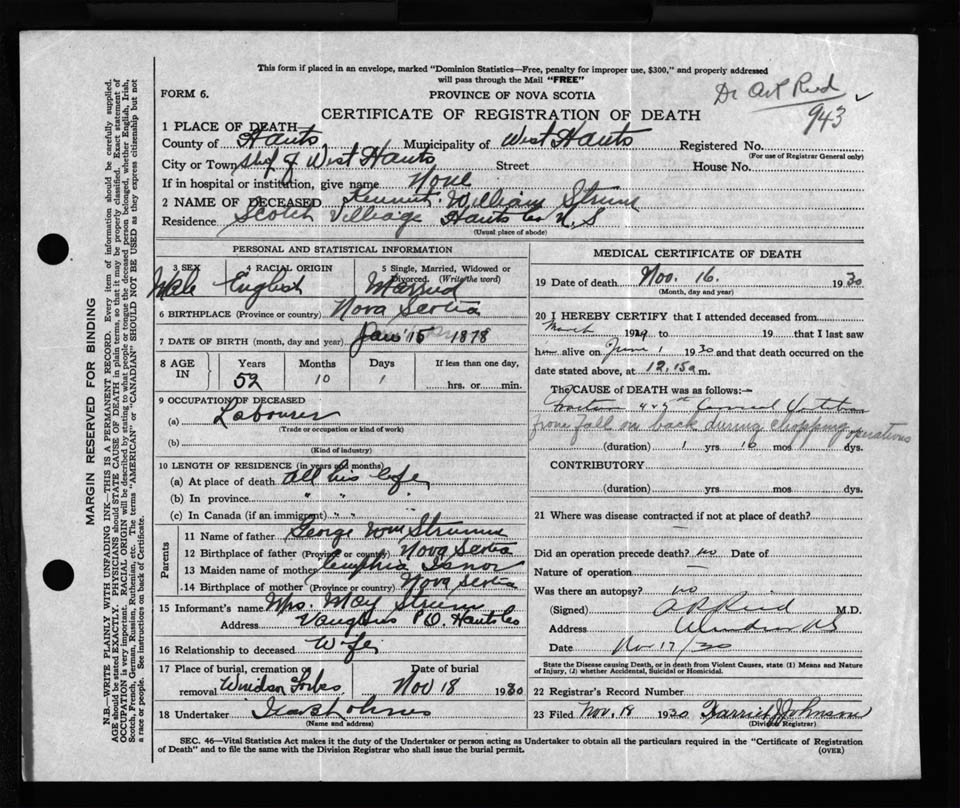 This form if placed in an envelope, marked "Dominion Statistics—Free, penalty for improper use, $300," and properly addressed
will pass through the Mail "FREE"
FORM 6.
PROVINCE OF NOVA SCOTIA
Dr Art Reid
943
CERTIFICATE OF REGISTRATION OF DEATH
1 PLACE OF DEATH—
County of Hants Municipality of West Hants Registered No.
(For use of Registrar General only)
City or Town of West Hants Street House No.
If in hospital or institution, give name None
2 NAME OF DECEASED William Strum
Residence Scotch Village Hants Co N.S
(Usual place of abode)
PERSONAL AND STATISTICAL INFORMATION
3 SEX 4 RACIAL ORIGIN 5 Single, Married, Widowed or Divorced. (Write the word)
Male English Married
6 BIRTHPLACE (Province or country) Nova Scotia
7 DATE OF BIRTH (month, day and year) Jan 15 1878
8 AGE IN Years Months Days If less than one day,
52 10 1 hrs. or min.
9 OCCUPATION OF DECEASED
(a) Labourer
(Trade or occupation or kind of work)
(b)
(Kind of industry)
10 LENGTH OF RESIDENCE (in years and months)
(a) At place of death All his life
(b) In province " " "
(c) In Canada (if an immigrant) " "
Parents
11 Name of father George Wm Strum
12 Birthplace of father (Province or country) Nova Scotia
13 Maiden name of mother Cynthia
14 Birthplace of mother (Province or country) Nova Scotia
15 Informant's name Mrs. May Strum
Address Vaughns P.O. Hants Co
16 Relationship to deceased Wife
17 Place of burial, cremation or removal Windsor Forks Date of burial Nov 18 1930
18 Undertaker
(Name and address)
MEDICAL CERTIFICATE OF DEATH
19 Date of death Nov. 16. 1930
(Month, day and year)
20 I HEREBY CERTIFY that I attended deceased from
March 1929 to 19 that I last saw
him alive on June 1 1930 and that death occurred on the
date stated above, at 12.15 a m.
The CAUSE of DEATH was as follows:—
from fall on back during chopping operations
(duration) 1 yrs mos dys.
CONTRIBUTORY
(duration) yrs mos dys.
21 Where was disease contracted if not at place of death?
Did an operation precede death? no Date of
Nature of operation —
Was there an autopsy? no
(Signed) A R Reid M.D.
Address Windsor NS
Date Nov 17/30
State the Disease causing Death, or in death from Violent Causes, state (1) Means and Nature
of Injury, (2) whether Accidental, Suicidal or Homicidal.
22 Registrar's Record Number
23 Filed Nov. 18 1930 Johnson
(Division Registrar)
SEC. 46—Vital Statistics Act makes it the duty of the Undertaker or person acting as Undertaker to obtain all the particulars required in the "Certificate of Registration
of Death" and to file the same with the Division Registrar who shall issue the burial permit. (OVER)
MARGIN RESERVED FOR BINDING
N.B.—WRITE PLAINLY WITH UNFADING INK—THIS IS A PERMANENT RECORD. Every item of information should be carefully supplied.
AGE should be stated EXACTLY. PHYSICIANS should STATE CAUSE OF DEATH in plain terms, so that it may be properly classified. Exact statement of
OCCUPATION is very important. RACIAL ORIGIN will be described by stating to what people or tongue the deceased person belonged, whether English, Irish,
Scotch, French, German, Russian, Ruthenian, etc. The terms "AMERICAN" or "CANADIAN" SHOULD NOT BE USED as they express citizenship but not
a race or people. See instructions on back of Certificate.